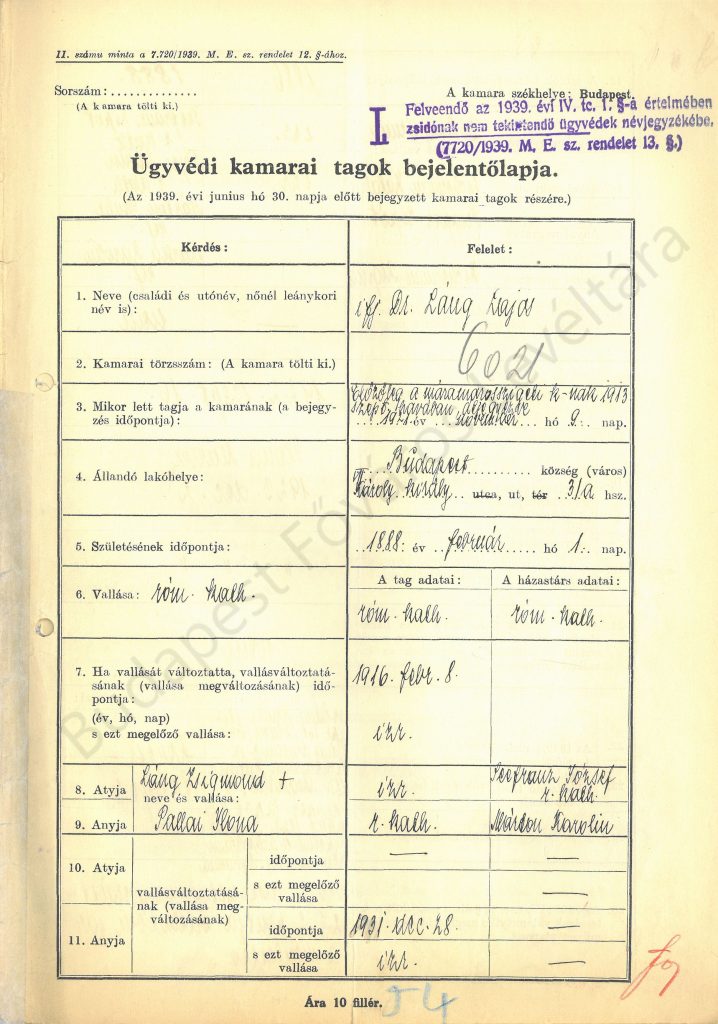 II. számu minta a 7.720/1939. M. E. sz. rendelet 12. §-ához.
Sorszám: ..............
(A kamara tölti ki.)
A kamara székhelye: Budapest.
I. Felveendő az 1939. évi IV. tc. 1. §-a értelmében
zsidónak nem tekintendő ügyvédek névjegyzékébe.
(7720/1939. M. E. sz. rendelet 13. §.)
Ügyvédi kamarai tagok bejelentőlapja.
(Az 1939. évi junius hó 30. napja előtt bejegyzett kamarai tagok részére.)
Kérdés: Felelet:
1. Neve (családi és utónév, nőnél leánykori
név is):
ifj. Dr. Láng Lajos
2. Kamarai törzsszám: (A kamara tölti ki.)
6021
3. Mikor lett tagja a kamarának (a bejegyzés időpontja):
Előzőleg a máramarosszigeti k-nak 1913
év november hó 9. nap.
4. Állandó lakóhelye:
Budapest község (város)
Károly király utca, ut, tér 3/a hsz.
5. Születésének időpontja:
1888. év február hó 1. nap.
A tag adatai: A házastárs adatai:
6. Vallása: róm. kath.
róm. kath. róm. kath.
7. Ha vallását változtatta, vallásváltoztatásának (vallása megváltozásának) időpontja:
(év, hó, nap)
1916. febr. 8.
s ezt megelőző vallása:
izr.
8. Atyja Láng Zsigmond +
neve és vallása:
izr. József
r. kath.
9. Anyja Pallai Ilona
r. kath. Márton Karolin
10. Atyja
vallásváltoztatásának (vallása megváltozásának)
időpontja — —
s ezt megelőző
vallása —
11. Anyja
időpontja 1931. dec. 28. —
s ezt megelőző
vallása izr. —
Ára 10 fillér.
54